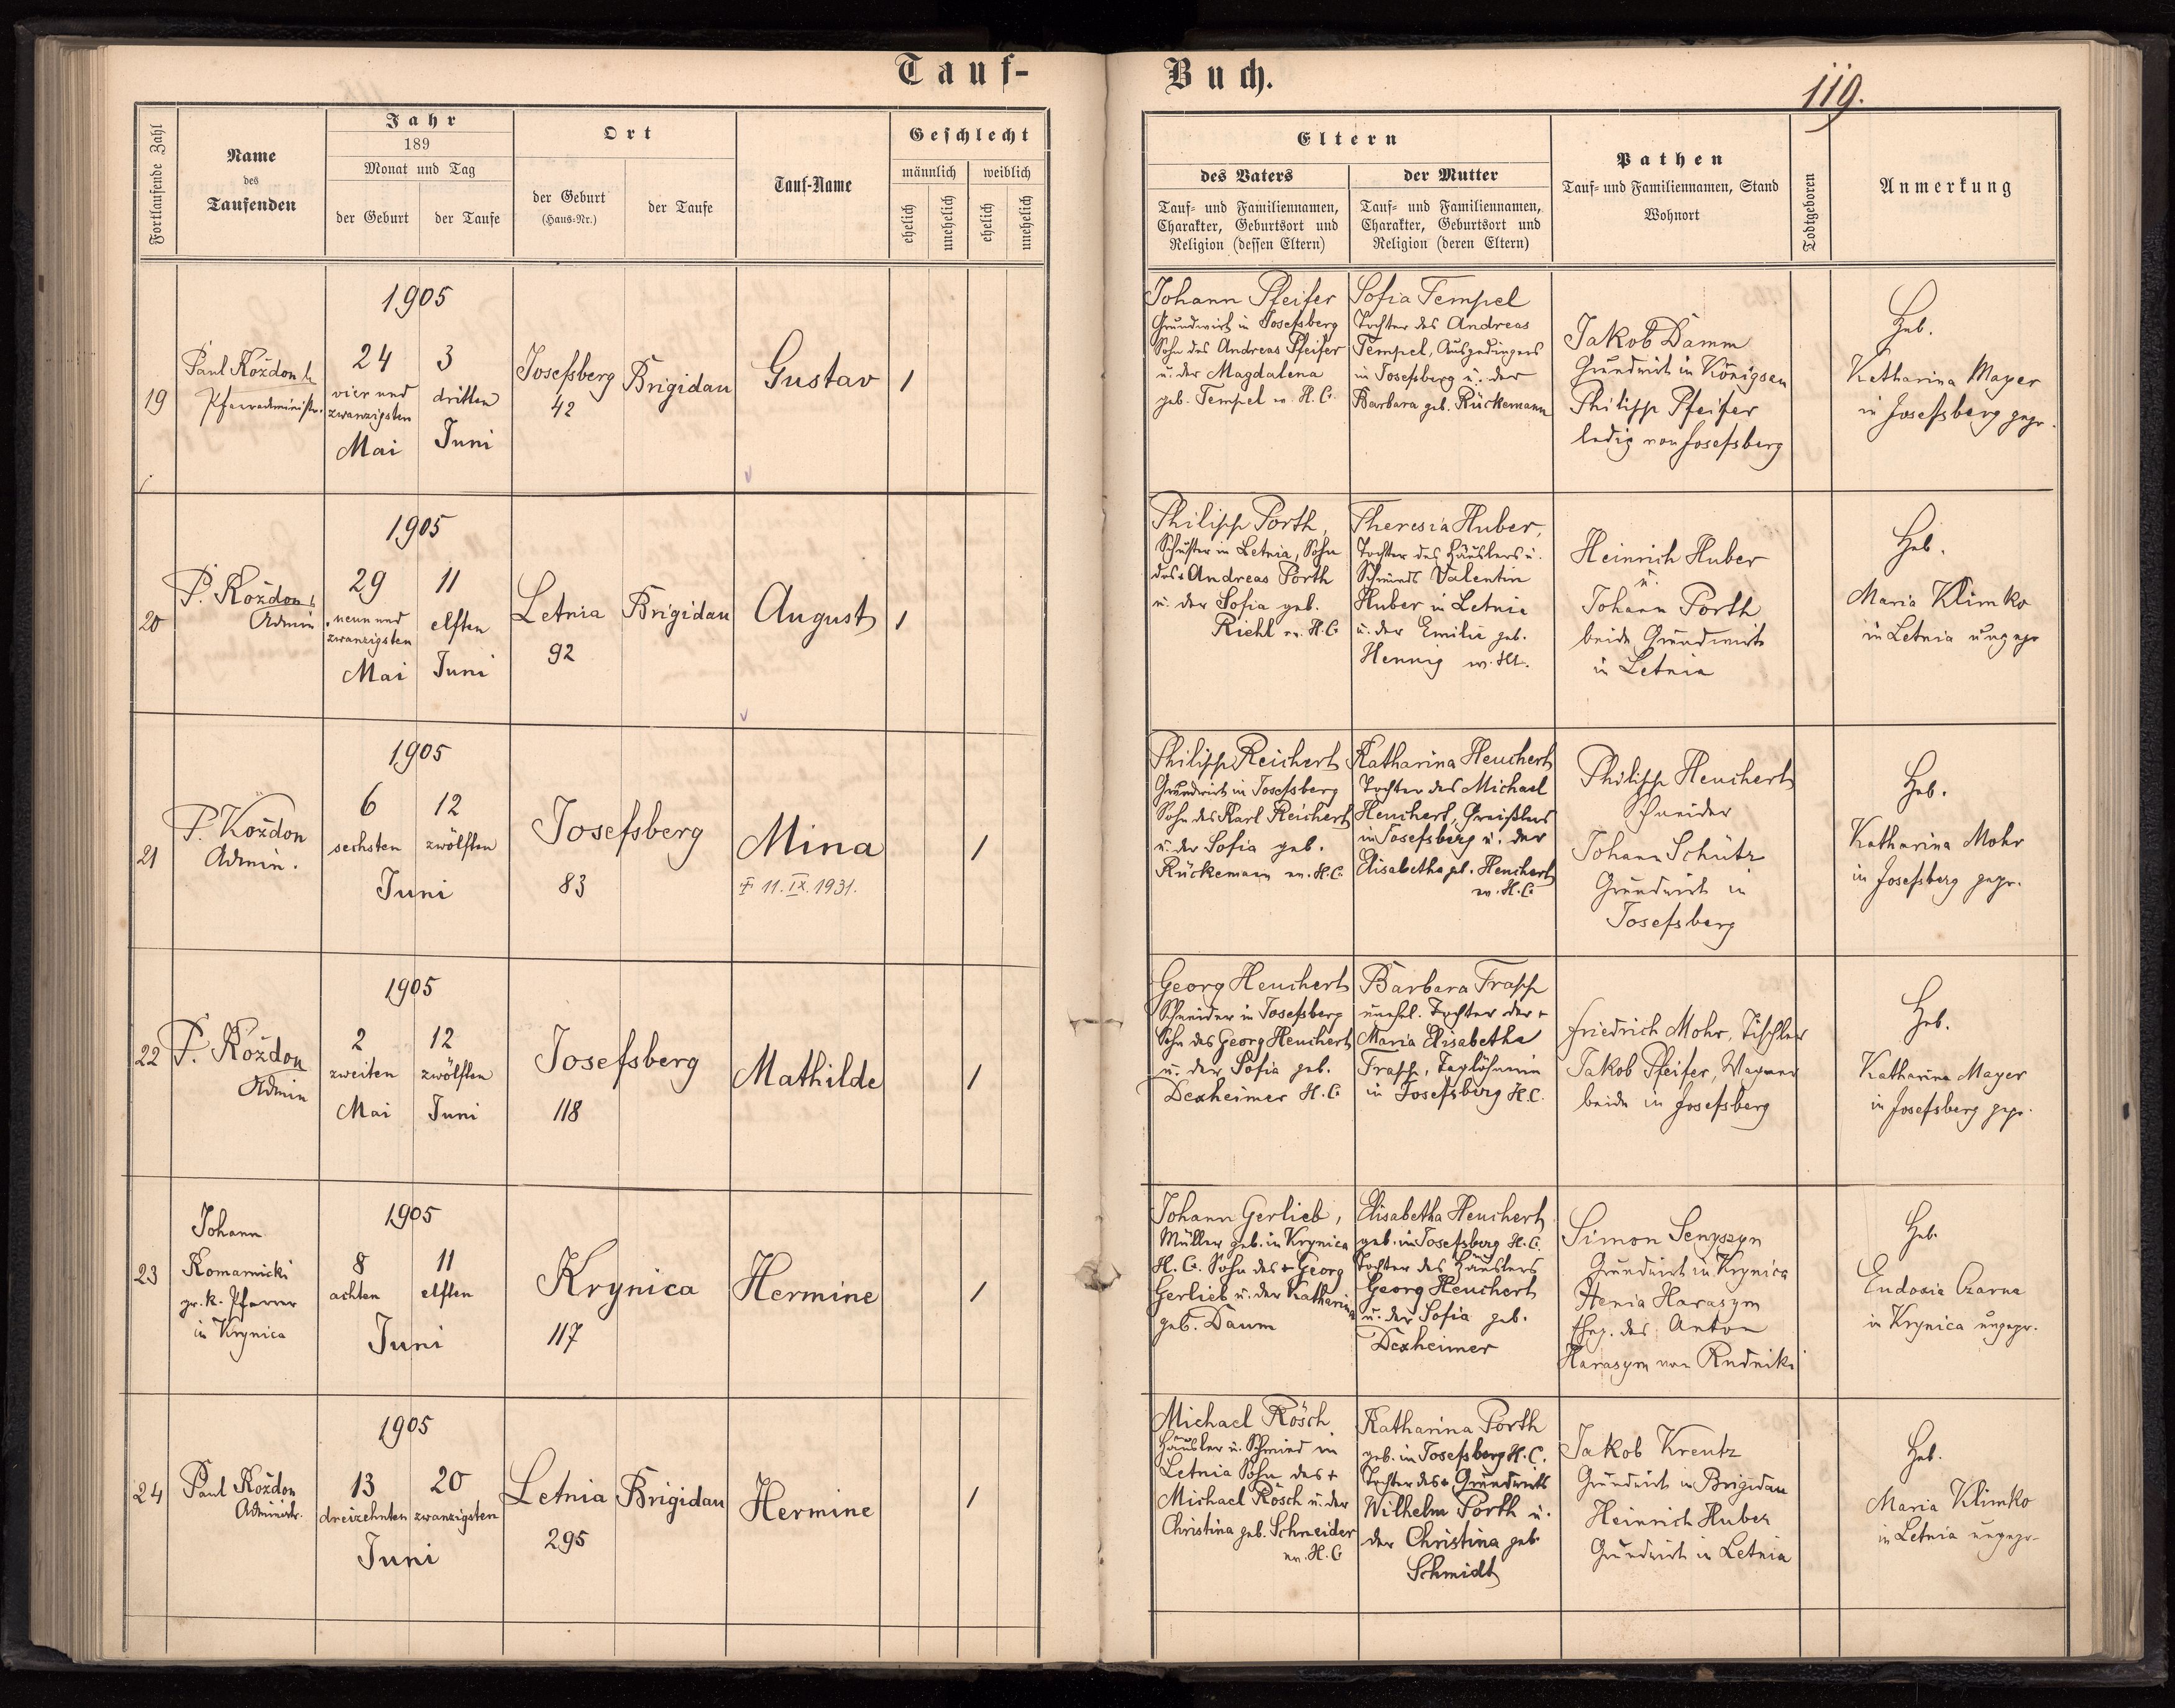 Tauf-
Buch.
119.
Fortlaufende Zahl
Name
des
Taufenden
Jahr
189
Monat und Tag
der Geburt
der Taufe
Ort
der Geburt
(Haus-Nr.)
der Taufe
Tauf-Name
Geschlecht
männlich
weiblich
ehelich
unehelich
ehelich
unehelich
Eltern
des Vaters
Tauf- und Familiennamen,
Charakter, Geburtsort und
Religion (dessen Eltern)
der Mutter
Tauf- und Familiennamen,
Charakter, Geburtsort und
Religion (deren Eltern)
Pathen
Tauf- und Familiennamen, Stand
Wohnort
Todtgeboren
Anmerkung
19
Paul Kożdon
Pfarradministr.
1905
24
vier und
zwanzigsten
Mai
3
dritten
Juni
Josefsberg
42
Brigidau
Gustav
1
Johann Pfeifer
Grundwirt in Josefsberg
Sohn des Andreas Pfeifer
u. der Magdalena
geb. Tempel ev. H. C.
Sofia Tempel
Tochter des Andreas
Tempel, Ausgedingers
in Josefsberg u. der
Barbara geb. Rückemann
Jakob Damm
Grundwirt in Königsau
Philipp Pfeifer
ledig von Josefsberg
Heb.
Katharina Mayer
in Josefsberg gepr.
20
P. Kożdon
Admin
1905
29
neun und
zwanzigsten
Mai
11
elften
Juni
Letnia
92
Brigidau
August
1
Philipp Porth,
Schuster in Letnia, Sohn
des + Andreas Porth
u. der Sofia geb.
Riehl ev. H. C.
Theresia Huber,
Tochter des Häuslers u.
Schmieds Valentin
Huber in Letnia
u. der Emilie geb.
Hennig ev. HC.
Heinrich Huber
u.
Johann Porth
beide Grundwirte
in Letnia
Heb.
Maria Klimko
in Letnia ungepr
21
P. Kożdon
Admin.
1905
6
sechsten
12
zwölften
Juni
Josefsberg
83
Mina
+ 11. IX. 1931.
1
Philipp Reichert
Grundwirt in Josefsberg
Sohn des Karl Reichert
u. der Sofia geb.
Rückemann ev. H. C.
Katharina Heuchert
Tochter des Michael
Heuchert, Greißlers
in Josefsberg u. der
Elisabetha geb. Heuchert
ev. H. C.
Philipp Heuchert
Schneider
Johann Schütz
Grundwirt in
Josefsberg
Heb.
Katharina Mohr
in Josefsberg gepr.
22
P. Kożdon
Admin
1905
2
zweiten
Mai
12
zwölften
Juni
Josefsberg
118
Mathilde
1
Georg Heuchert
Schneider in Josefsberg
Sohn des Georg Heuchert
u. der Sofia geb.
Dexheimer H. C.
Barbara Trapp
unehel. Tochter der +
Maria Elisabetha
Trapp, Taglöhnerin
in Josefsberg H.C.
Friedrich Mohr, Tischler
Jakob Pfeifer, Wagner
beide in Josefsberg
Heb.
Katharina Mayer
in Josefsberg gepr.
23
Johann
Romarnicki
gr. k. Pfarrer
in Krynica
1905
8
achten
11
elften
Juni
Krynica
117
Hermine
1
Johann Gerlieb,
Müller geb. in Krynica
H. C. Sohn des + Georg
Gerlieb u. der Katharina
geb. Daum
Elisabetha Heuchert
geb. in Josefsberg H. C.
Tochter des Häuslers
Georg Heuchert
u. der Sofia geb.
Dexheimer
Simon Senyszyn
Grundwirt in Krynica
Henia Harasym
Eheg. des Anton
Harasym von Rudniki
Heb.
Eudoxia Czarna
in Krynica ungepr.
24
Paul Kożdon
Administr.
1905
13
dreizehnten
20
zwanzigsten
Juni
Letnia
295
Brigidau
Hermine
1
Michael Rösch
Häusler u. Schmied in
Letnia Sohn des +
Michael Rösch u. der
Christina geb. Schneider
ev. H. C.
Katharina Porth
geb. in Josefsberg H. C.
Tochter des + Grundwirts
Wilhelm Porth u.
der Christina geb.
Schmidt
Jakob Kreutz
Grundwirt in Brigidau
Heinrich Huber
Grundwirt in Letnia
Heb.
Maria Klimko
in Letnia ungepr.